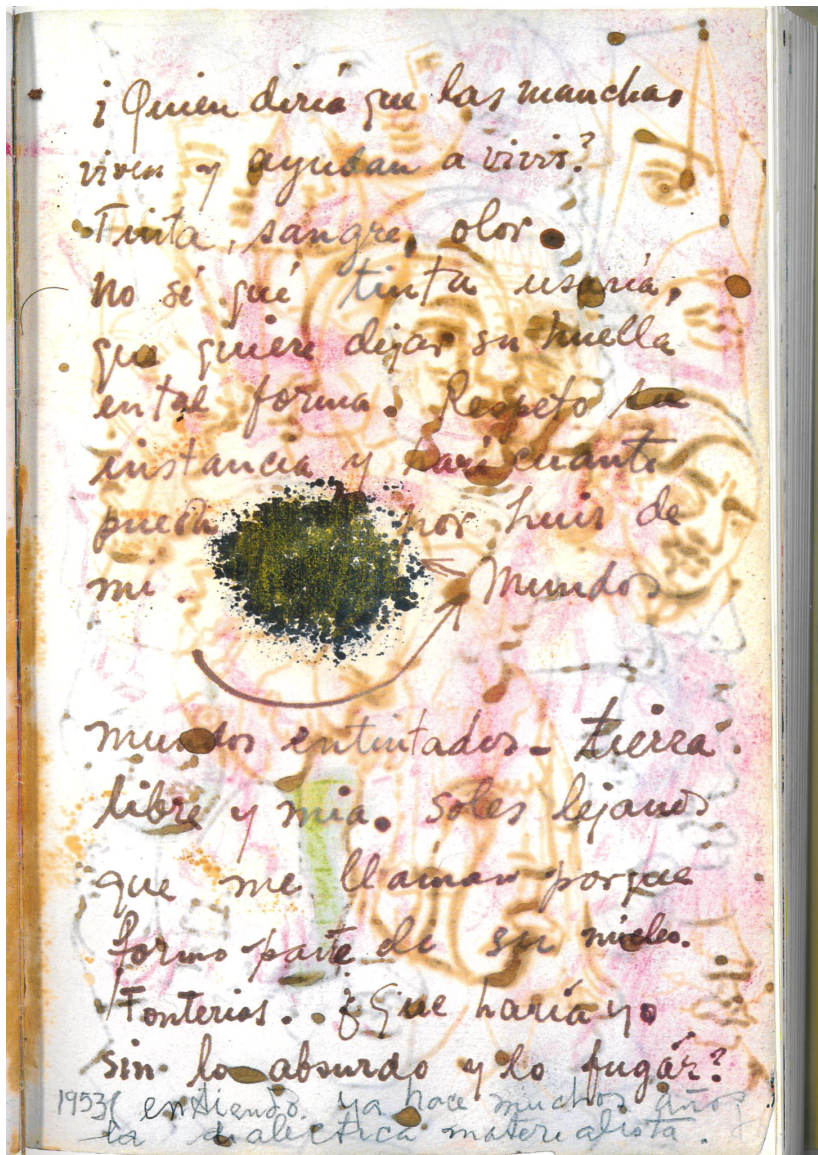 ¡Quien diria que las manchas
viven y ayudan a vivir?
Tinta, sangre, olor.
No sé qué tinta usaria,
que quiere dejar su huella
en tal forma. Respeto su
instancia y haré cuanto
pueda por huir de
mi. Mundos
mundos entintados - tierra
libre y mia. Soles lejanos
que me llaman porque
formo parte de su núcleo.
Tonterias. ¿Que haría yo
sin lo absurdo y lo fugáz?
1953 entiendo ya hace muchos años
la dialectica materialista.